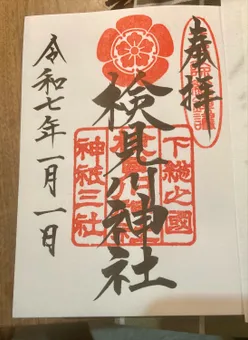 奉拝
検見川神社
下総之國
神祇三社
令和七年一月一日